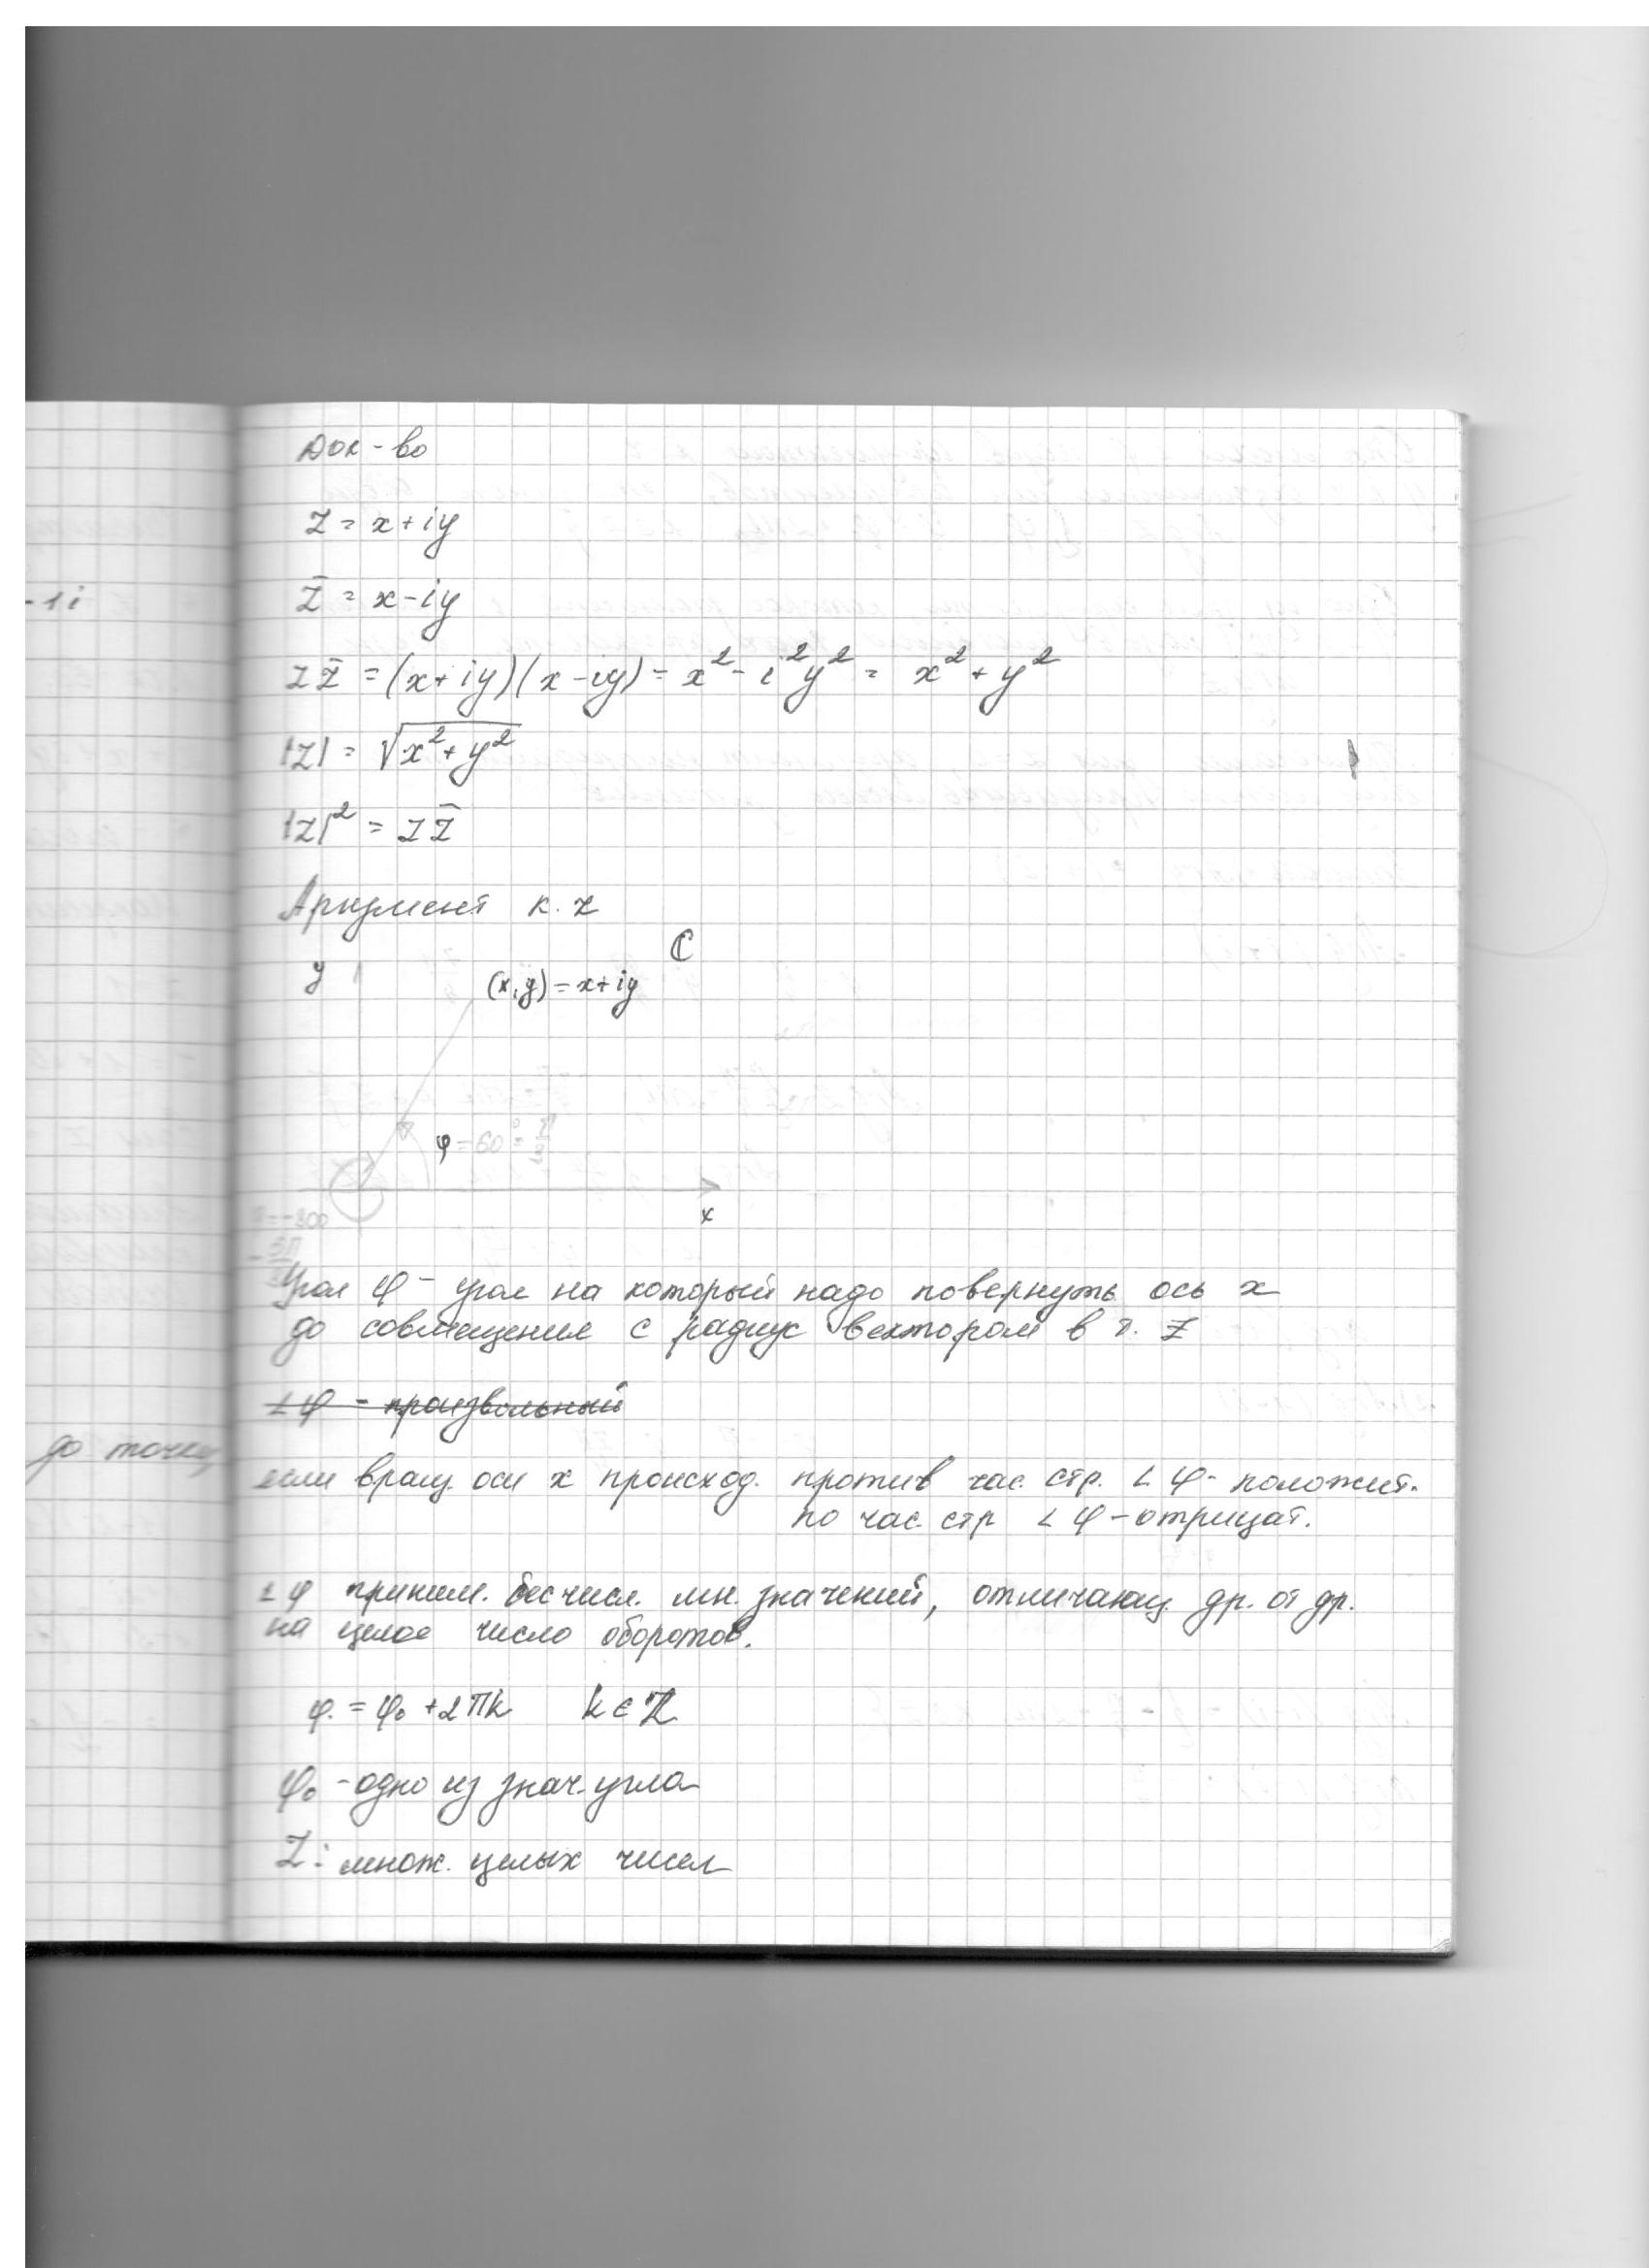 -1i
до точки
Док-во
z = x+iy
z̄ = x-iy
z z̄ = (x+iy)(x-iy) = x² - i²y² = x² + y²
|z| = √(x²+y²)
|z|² = z z̄
Аргумент к. z
ℂ
y
(x,y) = x+iy
φ = 60° = π/3
x
-300
Угол φ - угол на который надо повернуть ось x
до совмещения с радиус вектором в т. z
∠φ - произвольный
если вращ. оси x происход. против час. стр. ∠φ - положит.
по час. стр ∠φ - отрицат.
∠φ приним. бесчисл. мн. значений, отличающ. др. от др.
на целое число оборотов.
φ = φ₀ + 2πk k ∈ ℤ
φ₀ - одно из знач. угла
ℤ: множ. целых чисел